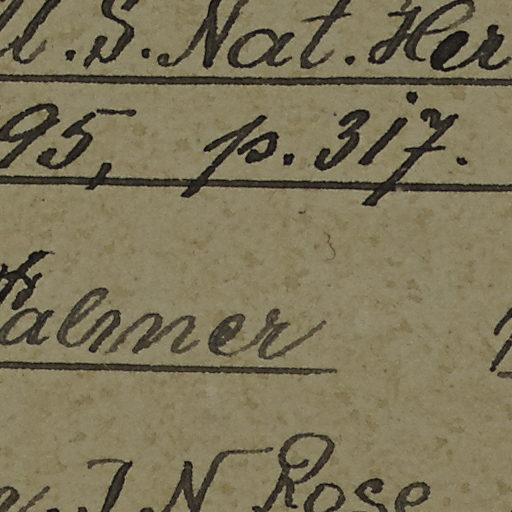 U.S. Nat. Her
95, p. 317.
Palmer
J.N. Rose